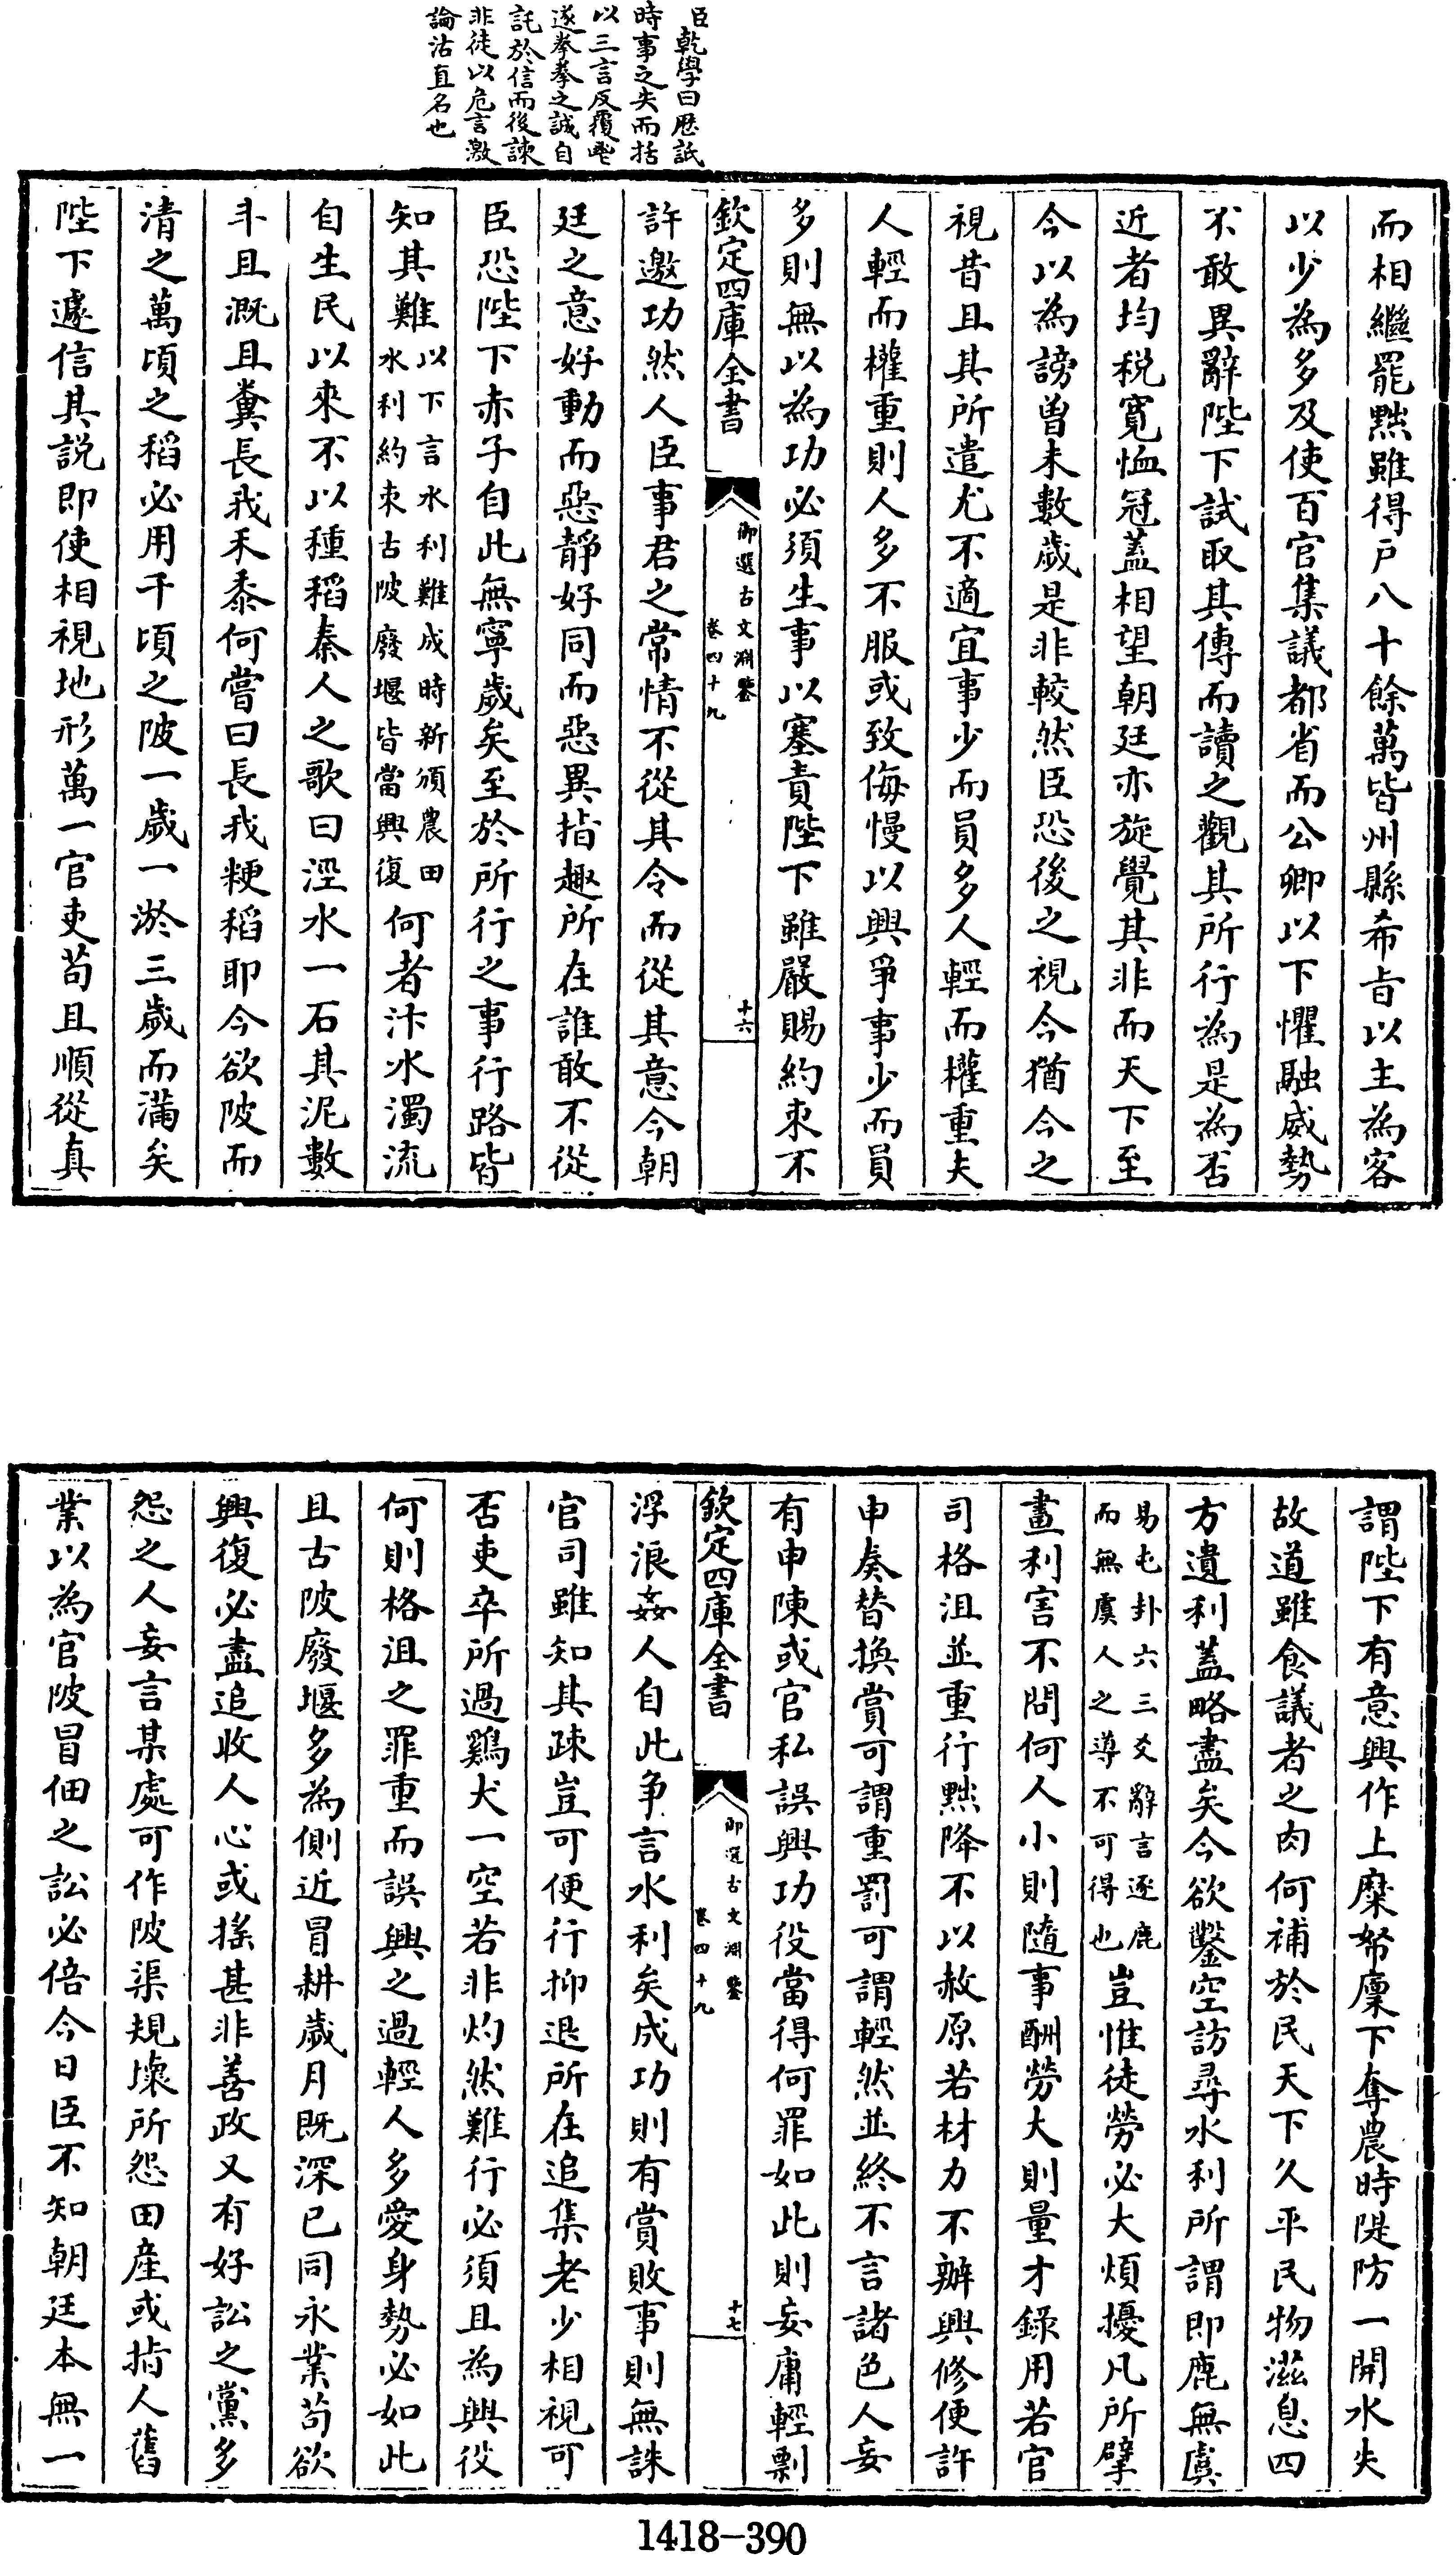 臣乾學曰歴詆
時事之失而括
以三言反覆
遂拳拳之誠自
託於信而後諫
非徒以危言激
論沽直名也
而相繼罷黜雖得戸八十餘萬皆州縣希旨以主為客
以少為多及使百官集議都省而公卿以下懼融威勢
不敢異辭陛下試取其傳而讀之觀其所行為是為否
近者均税寛恤冠蓋相望朝廷亦旋覺其非而天下至
今以為謗曽未數歲是非較然臣恐後之視今猶今之
視昔且其所遣尤不適宜事少而員多人輕而權重夫
人輕而權重則人多不服或致侮慢以興爭事少而員
多則無以為功必須生事以塞責陛下雖嚴賜約束不
欽定四庫全書
御選古文淵鑒
卷四十九
十六
許邀功然人臣事君之常情不從其令而從其意今朝
廷之意好動而惡静好同而惡異指趣所在誰敢不從
臣恐陛下赤子自此無寧歲矣至於所行之事行路皆
知其難以下言水利難成時新頒農田
水利約束古陂廢堰皆當興復何者汴水濁流
自生民以來不以種稻秦人之歌曰涇水一石其泥數
斗且溉且糞長我禾黍何嘗曰長我粳稻耶今欲陂而
清之萬頃之稻必用千頃之陂一歲一淤三歲而滿矣
陛下遽信其説即使相視地形萬一官吏苟且順從真
謂陛下有意興作上糜帑廩下奪農時隄防一開水失
故道雖食議者之肉何補於民天下久平民物滋息四
方遺利蓋略盡矣今欲鑿空訪尋水利所謂即鹿無虞
易屯卦六三爻辭言逐鹿
而無虞人之導不可得也豈惟徒勞必大煩擾凡所擘
畫利害不問何人小則隨事酬勞大則量才錄用若官
司格沮並重行黜降不以赦原若材力不辦興修便許
申奏替換賞可謂重罰可謂輕然並終不言諸色人妄
有申陳或官私誤興功役當得何罪如此則妄庸輕剽
欽定四庫全書
御選古文淵鑒
卷四十九
十七
浮浪姦人自此爭言水利矣成功則有賞敗事則無誅
官司雖知其疎豈可便行抑退所在追集老少相視可
否吏卒所過鷄犬一空若非灼然難行必須且為興役
何則格沮之罪重而誤興之過輕人多愛身勢必如此
且古陂廢堰多為側近冒耕歲月既深已同永業苟欲
興復必盡追收人心或搖甚非善政又有好訟之黨多
怨之人妄言某處可作陂渠規壞所怨田産或指人舊
業以為官陂冒佃之訟必倍今日臣不知朝廷本無一
1418-390